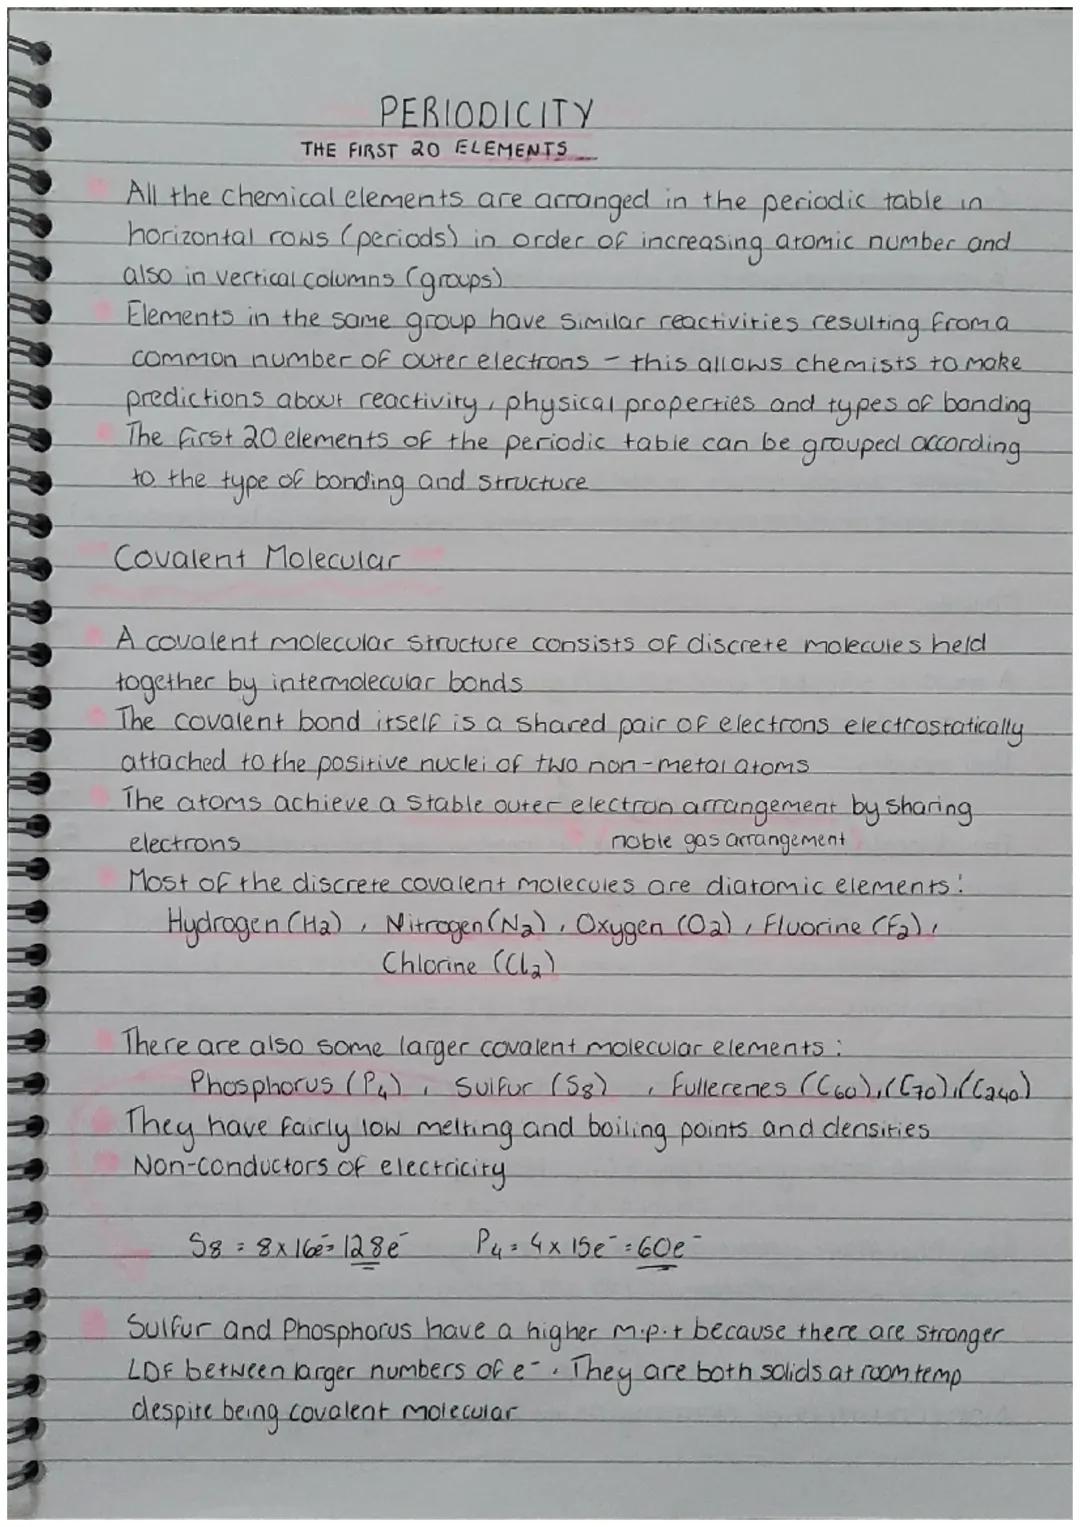 PERIODICITY
THE FIRST 20 ELEMENTS
All the chemical elements are arranged in the periodic table in
horizontal rows (periods) in order of increasing atomic number and
also in vertical columns (groups)
Elements in the same group have similar reactivities resulting from a
common number of outer electrons - this allows chemists to make
predictions about reactivity, physical properties and types of bonding
The first 20 elements of the periodic table can be grouped according
to the type of bonding and structure
Covalent Molecular
A covalent molecular structure consists of discrete molecules held
together by intermolecular bonds
The covalent bond itself is a shared pair of electrons electrostatically
attached to the positive nuclei of two non-metal atoms
The atoms achieve a stable outer electron arrangement by sharing
electrons (noble gas arrangement)
Most of the discrete covalent molecules are diatomic elements:
Hydrogen (H₂), Nitrogen (N₂), Oxygen (O₂), Fluorine (F₂),
Chlorine (Cl₂)
There are also some larger covalent molecular elements:
Phosphorus (P₄), Sulfur (S₈), Fullerenes (C₆₀), (C₇₀), (C₂₄₀)
They have fairly low melting and boiling points and densities
Non-conductors of electricity
S₈ = 8 x 16e⁻ = 128e⁻ P₄ = 4 x 15e⁻ = 60e⁻
Sulfur and Phosphorus have a higher m.p.t because there are stronger
LDF between larger numbers of e⁻. They are both solids at room temp
despite being covalent molecular